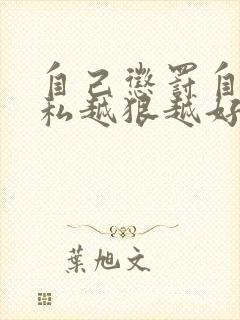 自己懲罰自
私越狠越好
葉旭文